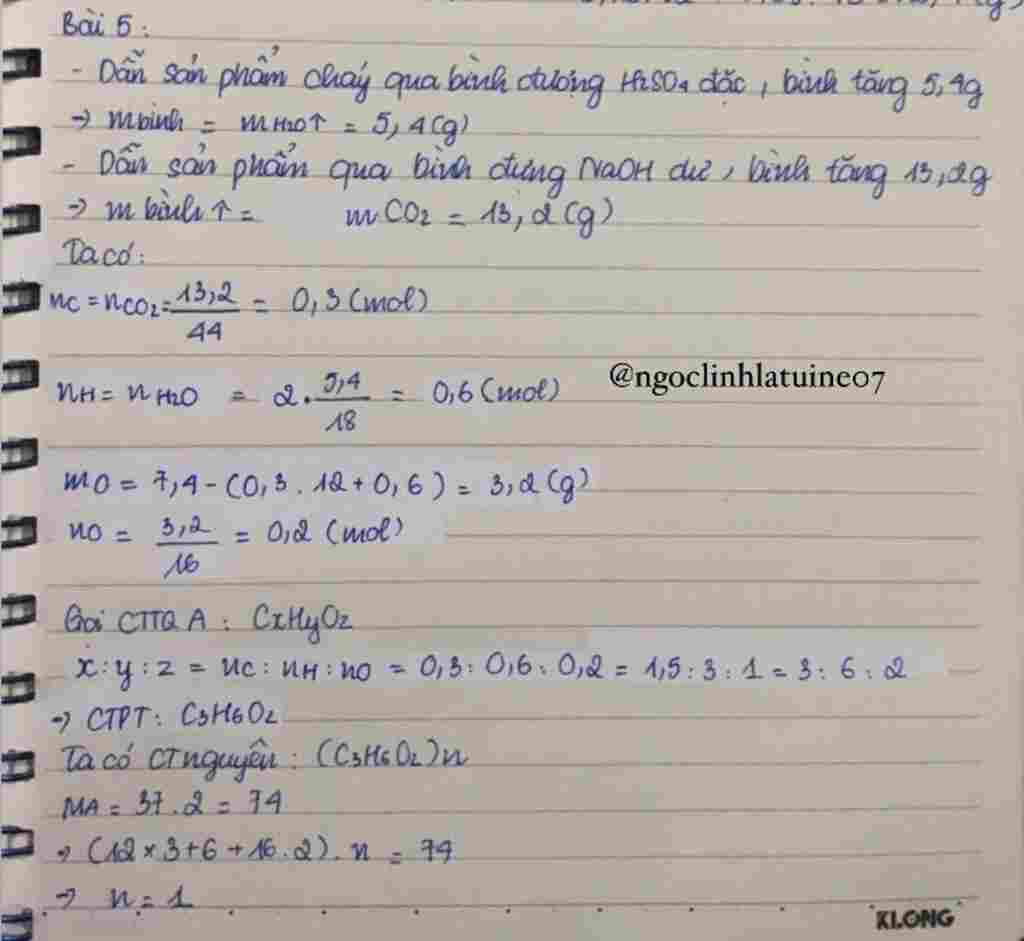 Bài 5:
- Dẫn sản phẩm cháy qua bình đựng H2SO4 đặc, bình tăng 5,4g
→ m bình = mH2O↑ = 5,4(g)
- Dẫn sản phẩm qua bình đựng NaOH dư, bình tăng 13,2g
→ m bình ↑ = mCO2 = 13,2(g)
Ta có:
nC = nCO2 = 13,2/44 = 0,3(mol)
nH = nH2O = 2.5,4/18 = 0,6(mol)
@ngoclinhlatuine07
mO = 7,4-(0,3.12+0,6) = 3,2(g)
nO = 3,2/16 = 0,2(mol)
Gọi CTTQ A: CxHyOz
x:y:z = nC:nH:nO = 0,3:0,6:0,2 = 1,5:3:1 = 3:6:2
→ CTPT: C3H6O2
Ta có CT nguyên: (C3H6O2)n
MA = 37.2 = 74
→ (12×3+6+16.2).n = 74
→ n = 1
KLONG